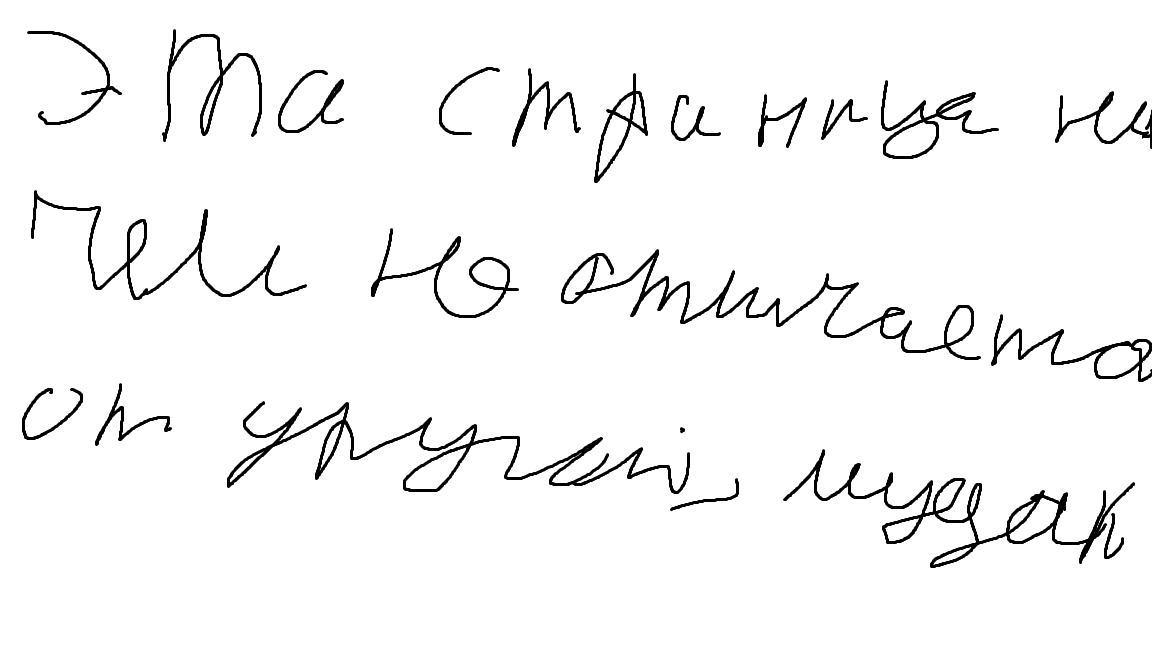 Эта страница ни
чем не отличаетс
от другой, мудак